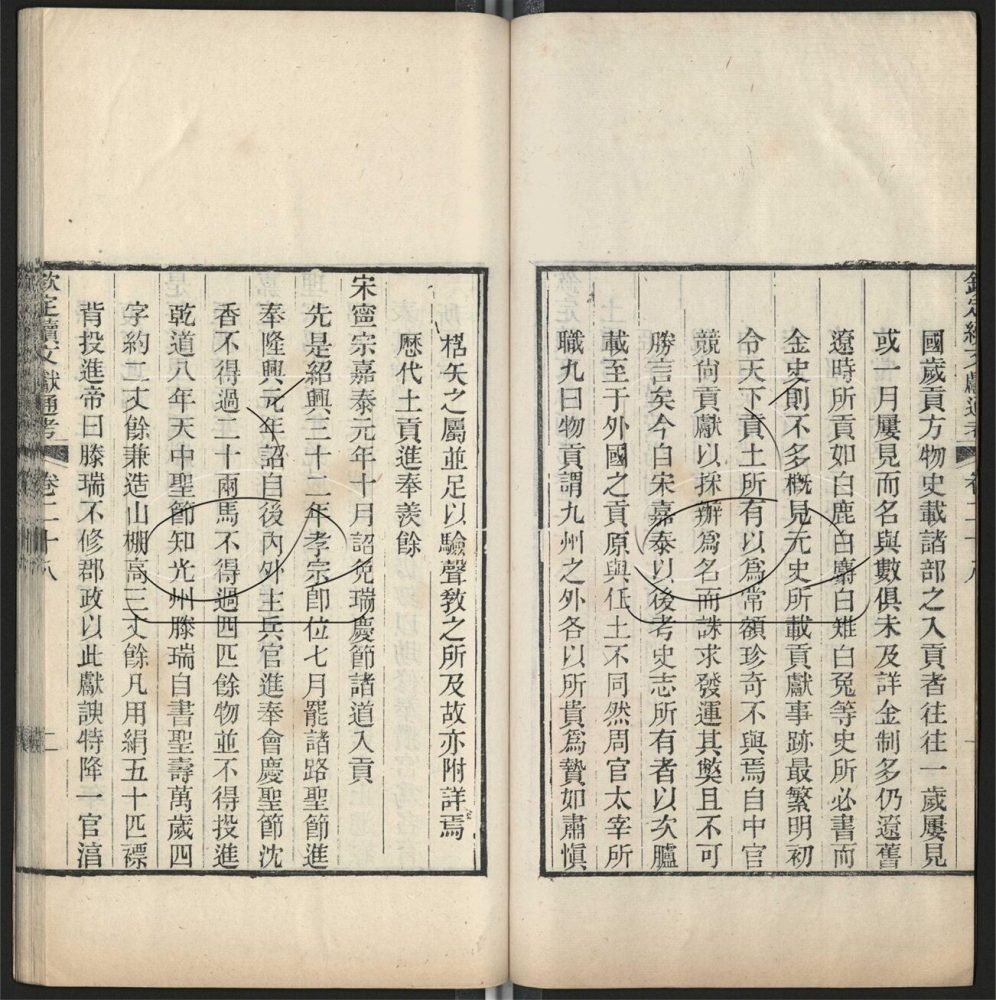 欽定續文獻通考 卷二十八 一
國歲貢方物史載諸部之入貢者往往一歲屢見
或一月屢見而名與數俱未及詳金制多仍遼舊
遼時所貢如白鹿白麞白雉白兔等史所必書而
金史則不多概見元史所載貢獻事跡最繁明初
令天下貢土所有以爲常額珍奇不與焉自中官
競尙貢獻以採辦爲名而誅求發運其獘且不可
勝言矣今自宋嘉泰以後考史志所有者以次臚
載至于外國之貢原與任土不同然周官太宰所
職九曰物貢謂九州之外各以所貴爲贄如肅愼
楛矢之屬並足以驗聲敎之所及故亦附詳焉
歷代土貢進奉羨餘
宋寧宗嘉泰元年十月詔免瑞慶節諸道入貢
先是紹興三十二年孝宗卽位七月罷諸路聖節進
奉隆興元年詔自後內外主兵官進奉會慶聖節沈
香不得過二十兩馬不得過四匹餘物並不得投進
乾道八年天中聖節知光州滕瑞自書聖壽萬歲四
字約二丈餘兼造山棚高三丈餘凡用絹五十匹褾
背投進帝曰滕瑞不修郡政以此獻諛特降一官淯
欽定續文獻通考 卷二十八 二